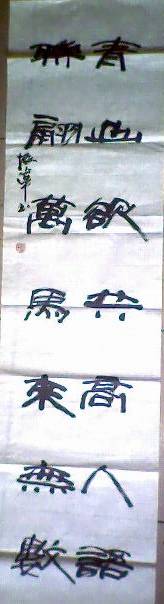 青山欲共高人語
聯翩萬馬來無數